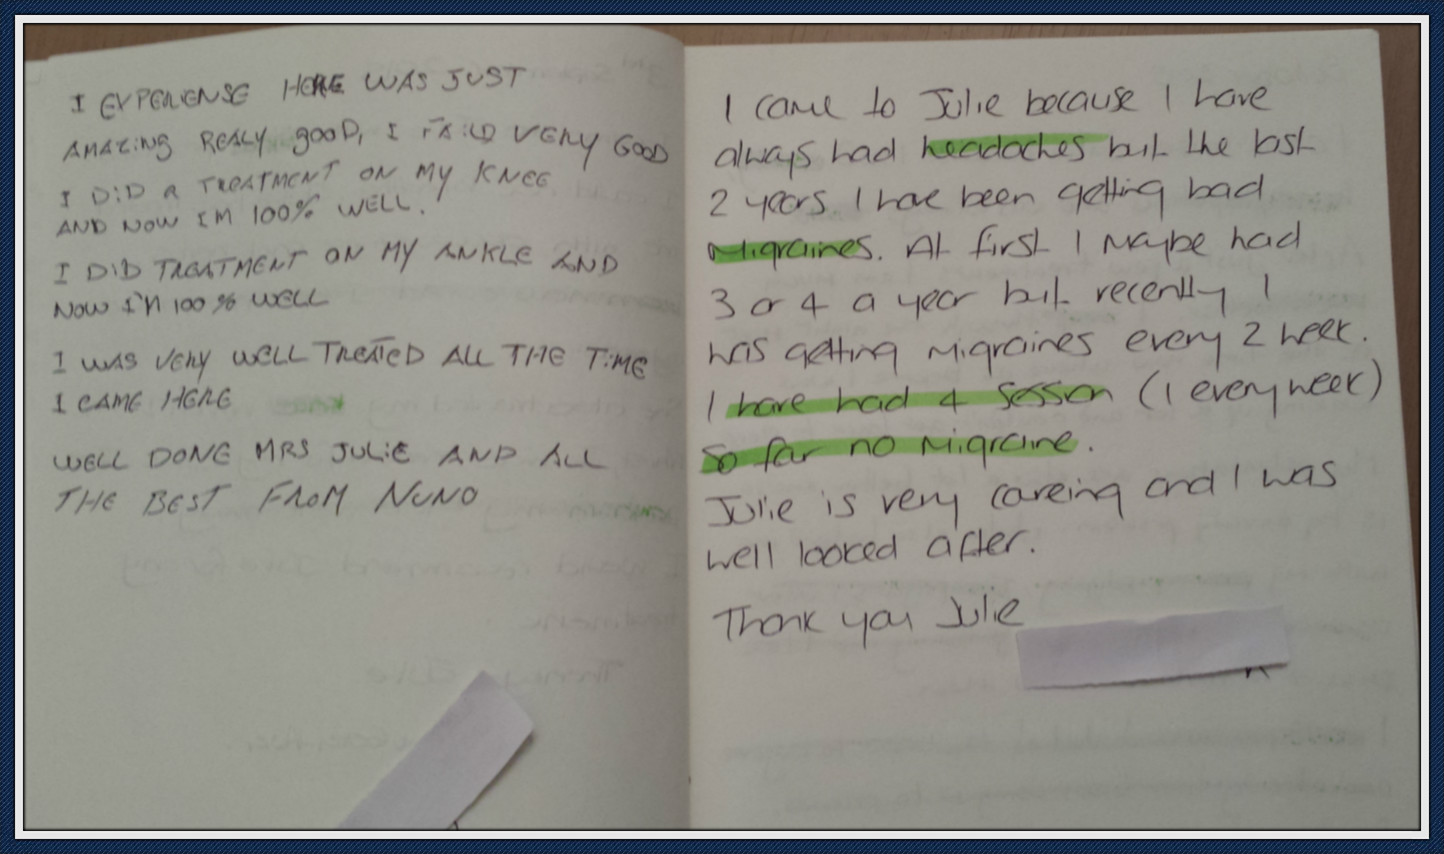 I EXPERIENSE HERE WAS JUST
AMAZING REALY gOOD, I VERY GOOD
I DID A TREATMENT ON MY KNEE
AND NOW IM 100% WELL.
I DID TREATMENT ON MY ANKLE AND
NOW I'M 100% WELL
I WAS VERY WELL TREATED ALL THE TIME
I CAME HERE
WELL DONE MRS JULIE AND ALL
THE BEST FROM NUNO
I came to Julie because I have
always had headaches but the last
2 years I have been getting bad
Migraines. At first I Maybe had
3 or 4 a year but recently I
was getting Migraines every 2 week.
I have had 4 Sesson (1 every week)
So far no Migraine.
Julie is very careing and I was
well looked after.
Thank you Julie